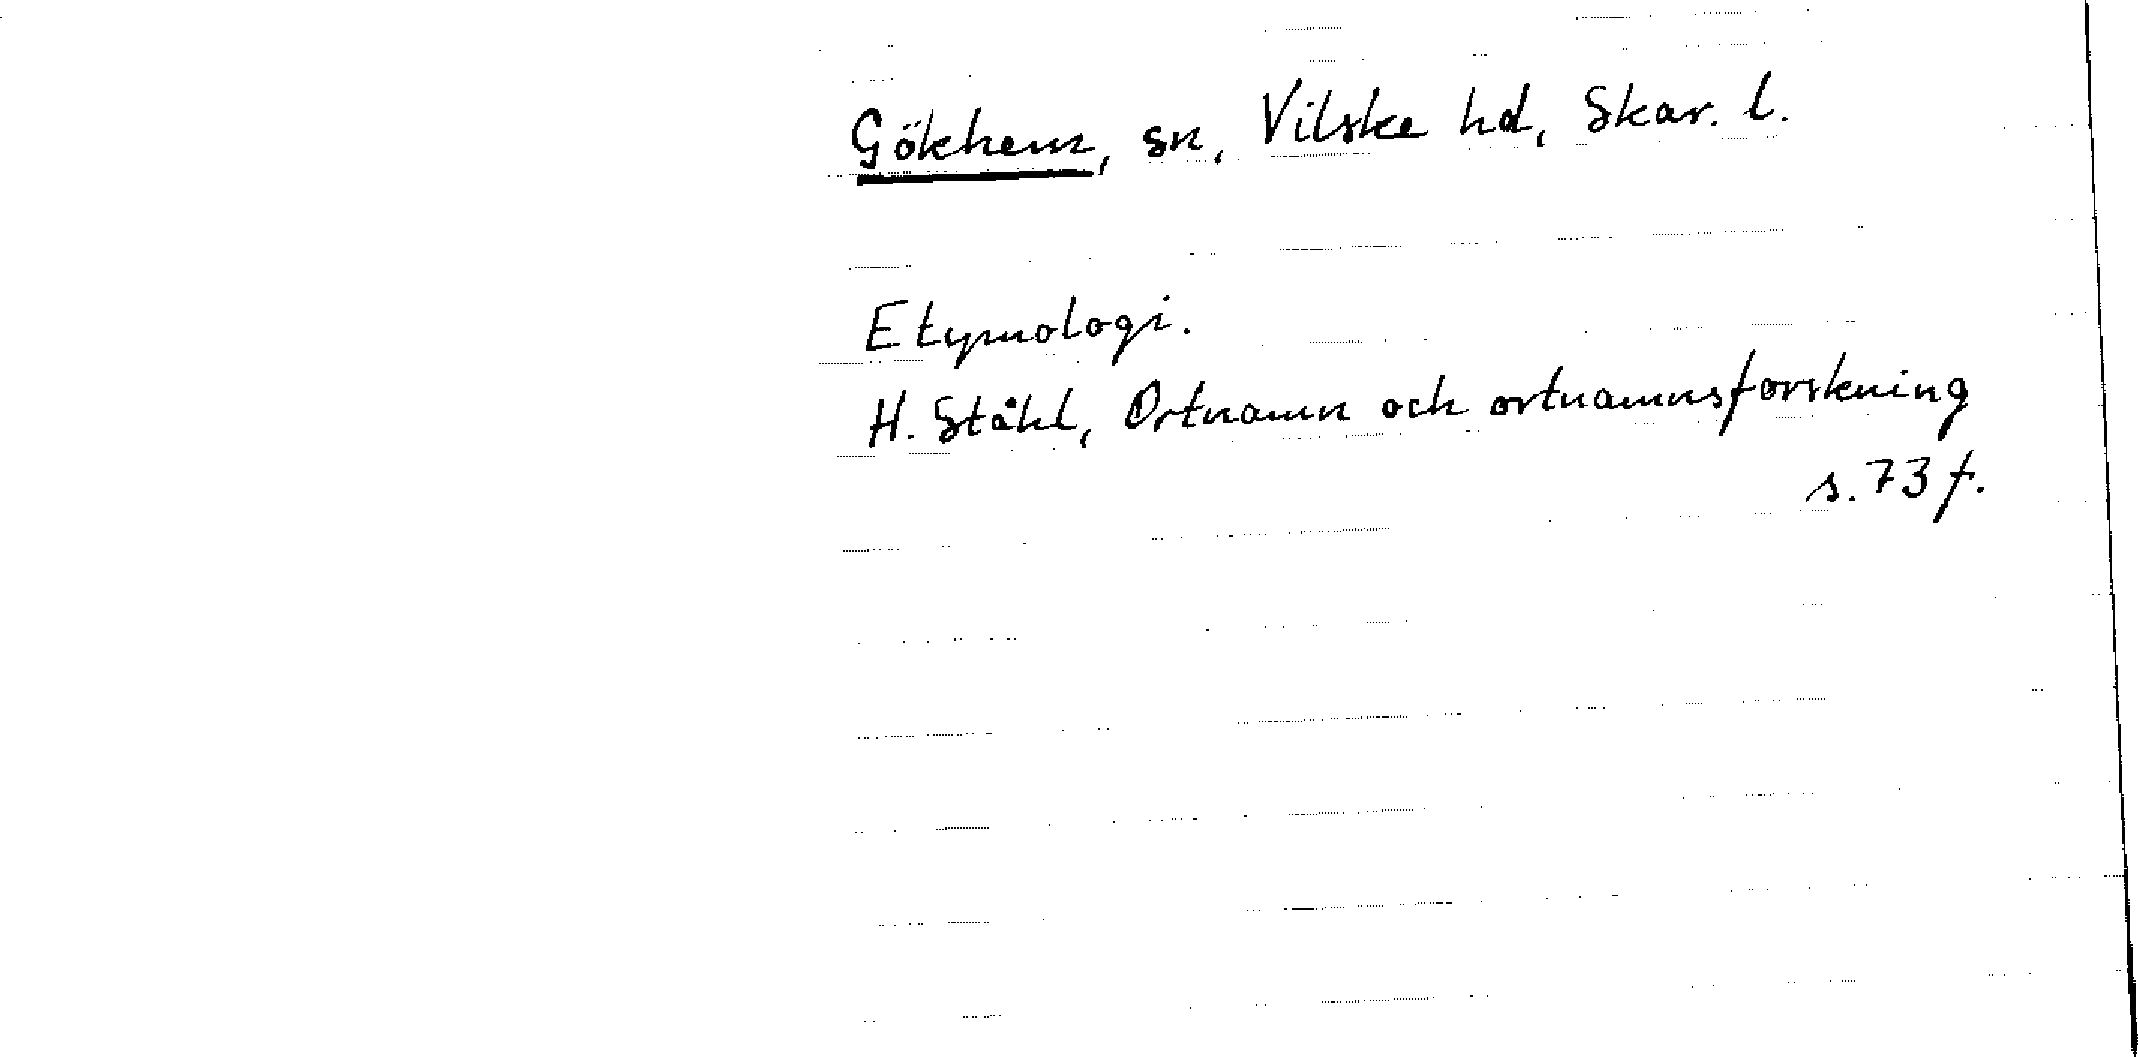 Gökhem, sn, Vilske hd, Skar. l.
Etymologi.
H. Ståhl, Ortnamn och ortnamnsforskning
s. 73 f.